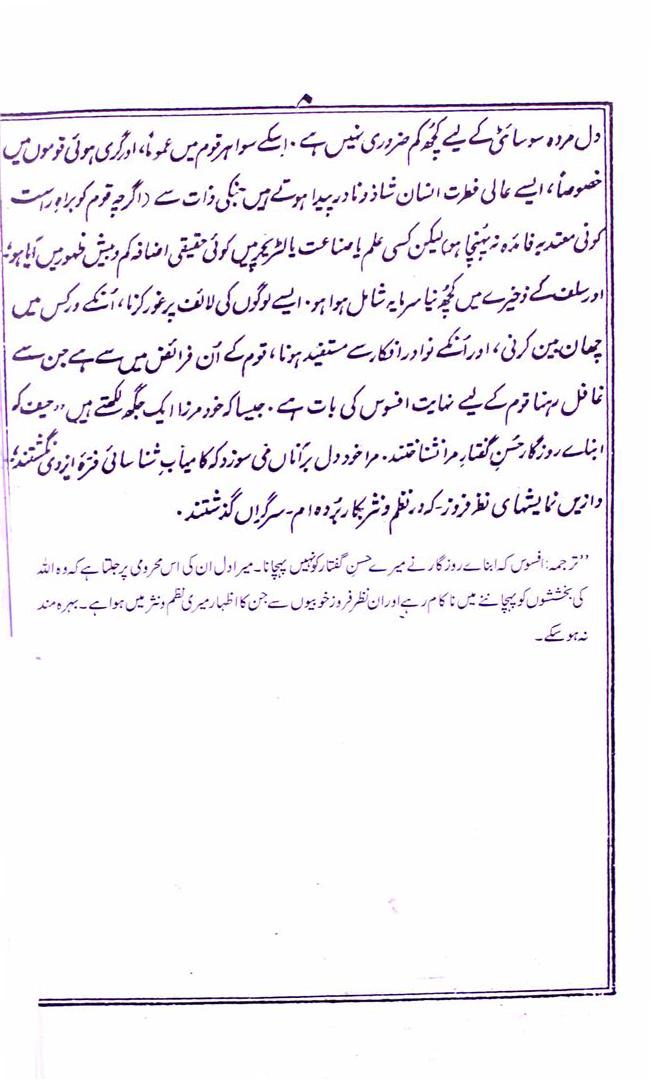 ۸
دل مردہ سوسائٹی کے لیے کچھ کم ضروری نہیں ہے۔ اسکے سوا ہر قوم میں عموماً، اور گری ہوئی قوموں میں
خصوصاً، ایسے عالی فطرت انسان شاذ و نادر پیدا ہوتے ہیں جنکی ذات سے (اگرچہ قوم کو براہ راست
کوئی معتد بہ فائدہ نہ پہنچا ہو) لیکن کسی علم یا صناعت یا لٹریچر میں کوئی حقیقی اضافہ کم و بیش ظہور میں آیا ہو؛
اور سلف کے ذخیرے میں کچھ نیا سرمایہ شامل ہوا ہو۔ ایسے لوگوں کی لائف پر غور کرنا، اُنکے ورکس میں
چھان بین کرنی، اور اُنکے نوادر افکار سے مستفید ہونا، قوم کے اُن فرائض میں سے ہے جن سے
غافل رہنا قوم کے لیے نہایت افسوس کی بات ہے۔ جیسا کہ خود مرزا ایک جگہ لکھتے ہیں "حیف کہ
ابناے روزگار حُسنِ گفتارِ مرا نشناختند۔ مرا خود دل بر آناں می سوزد کہ کامیابِ شناسائی فرّۂ ایزدی نگشتند؛
و ازیں نمایشہای نظر فروز۔ کہ در نظم و نثر بکار بُردہ ام۔ سرگراں گذشتند۔
"ترجمہ: افسوس کہ ابناے روزگار نے میرے حسنِ گفتار کو نہیں پہچانا۔ میرا دل ان کی اس محرومی پر جلتا ہے کہ وہ اللہ
کی بخششوں کو پہچاننے میں ناکام رہے اور ان نظر فروز خوبیوں سے جن کا اظہار میری نظم و نثر میں ہوا ہے۔ بہرہ مند
نہ ہو سکے۔